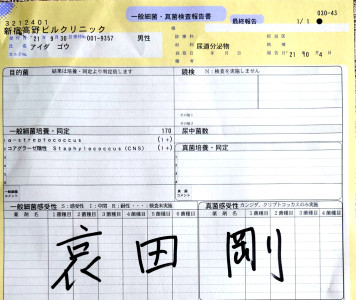 一般細菌・真菌検査報告書
030-43
3212401
最終報告
1/1
新宿高野ビルクリニック
'21年 9月30 001-9357 男性
アイダ ゴウ
尿道分泌物
'21 10 4
目的菌 結果は培養・同定より判定致します
鏡検 N:検査を実施しません
一般細菌培養・同定 170
尿中菌数
α-streptococcus (1+)
コアグラーゼ陰性 Staphylococcus(CNS) (1+)
真菌培養・同定
一般細菌感受性 S:感受性 I:中間 R:耐性
真菌感受性 カンジダ、クリプトコッカスのみ実施
薬剤名 1菌種目 2菌種目 3菌種目 4菌種目 5菌種目 6菌種目
薬剤名 1菌種目 2菌種目 3菌種目
哀田 剛